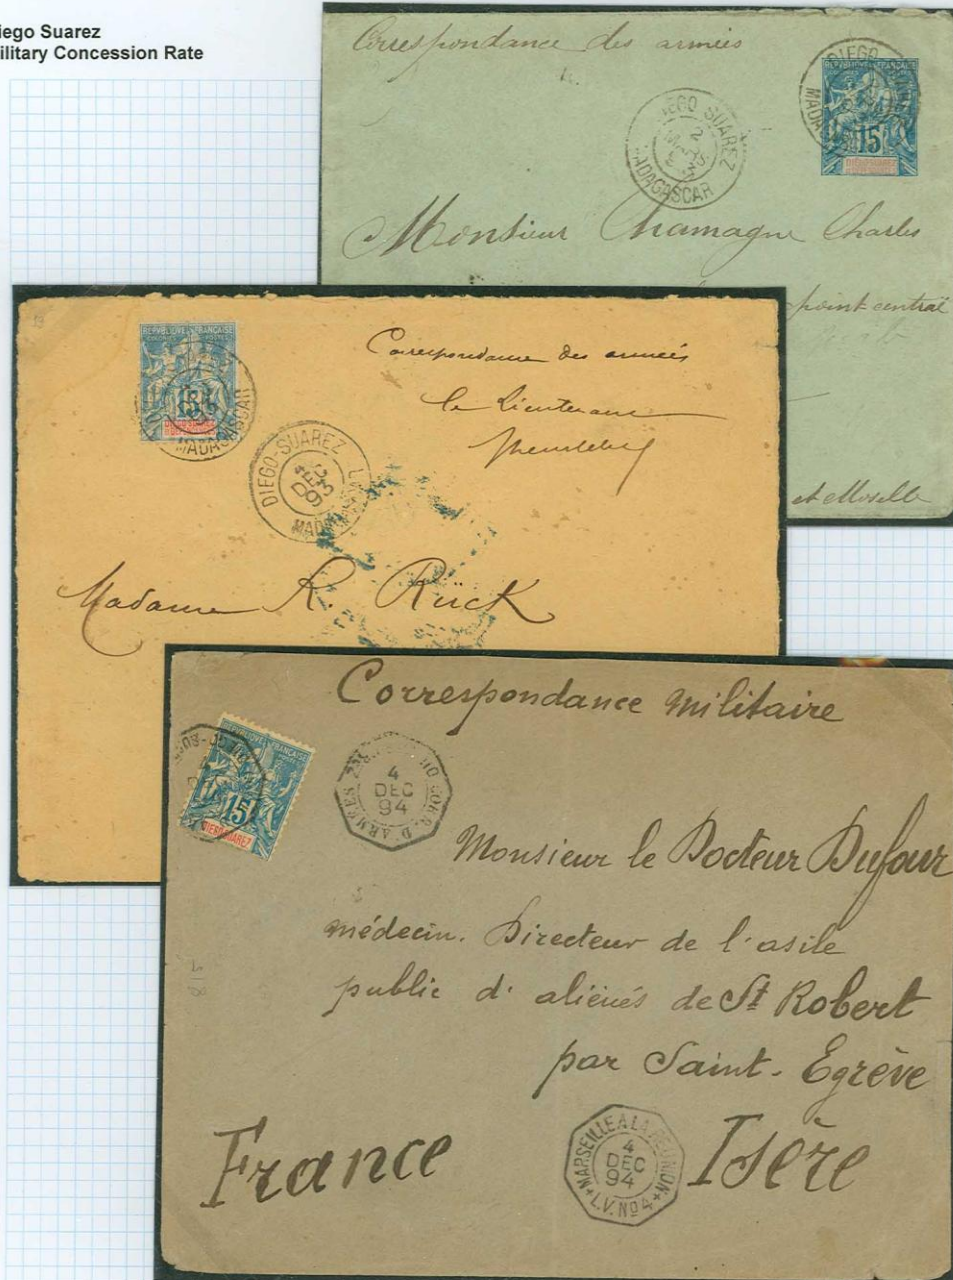 iego Suarez
ilitary Concession Rate
Correspondance des armées
DIEGO SUAREZ
2
MADAGASCAR
REPUBLIQUE FRANÇAISE
15
Monsieur Chamagne Charles
point central
et Moselle
REPUBLIQUE FRANÇAISE
15
MADAGASCAR
Correspondance des armées
le Lieutenant
DIEGO-SUAREZ
4
DEC
93
Madame R. Rück
Correspondance militaire
REPUBLIQUE FRANÇAISE
15
DIEGO-SUAREZ
CORR. D'ARMÉES
4
DEC
94
Monsieur le Docteur Dufour
médecin. Directeur de l'asile
public d'aliénés de St Robert
par Saint-Egrève
France
Isère
MARSEILLE A LA REUNION
4
DEC
94
L.V. No 4